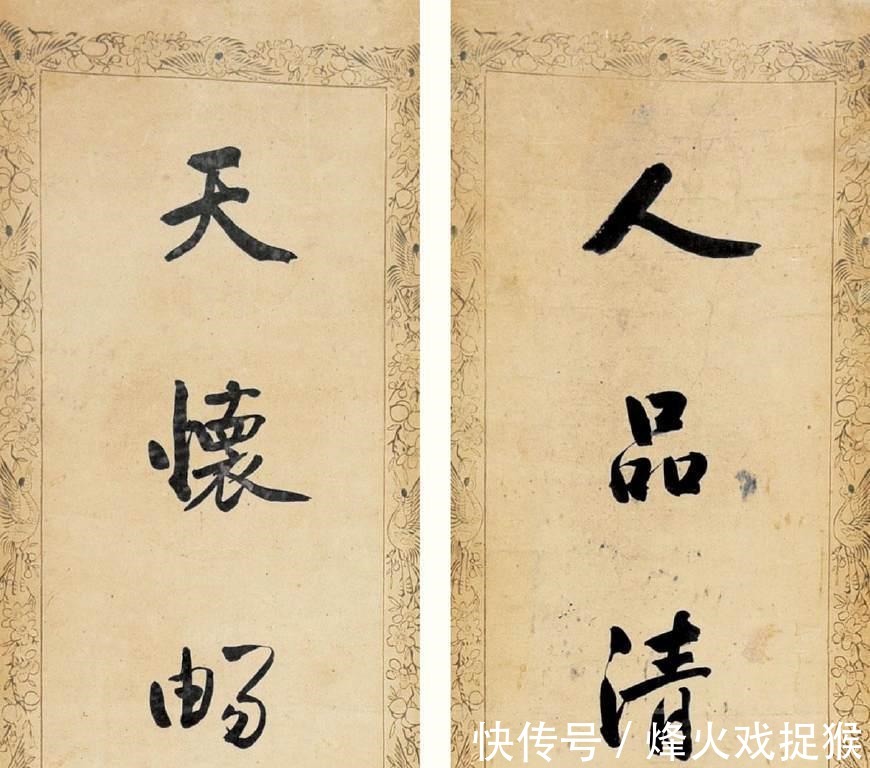 人品清
天懷暢
快传号 / 烽火戏捉猴